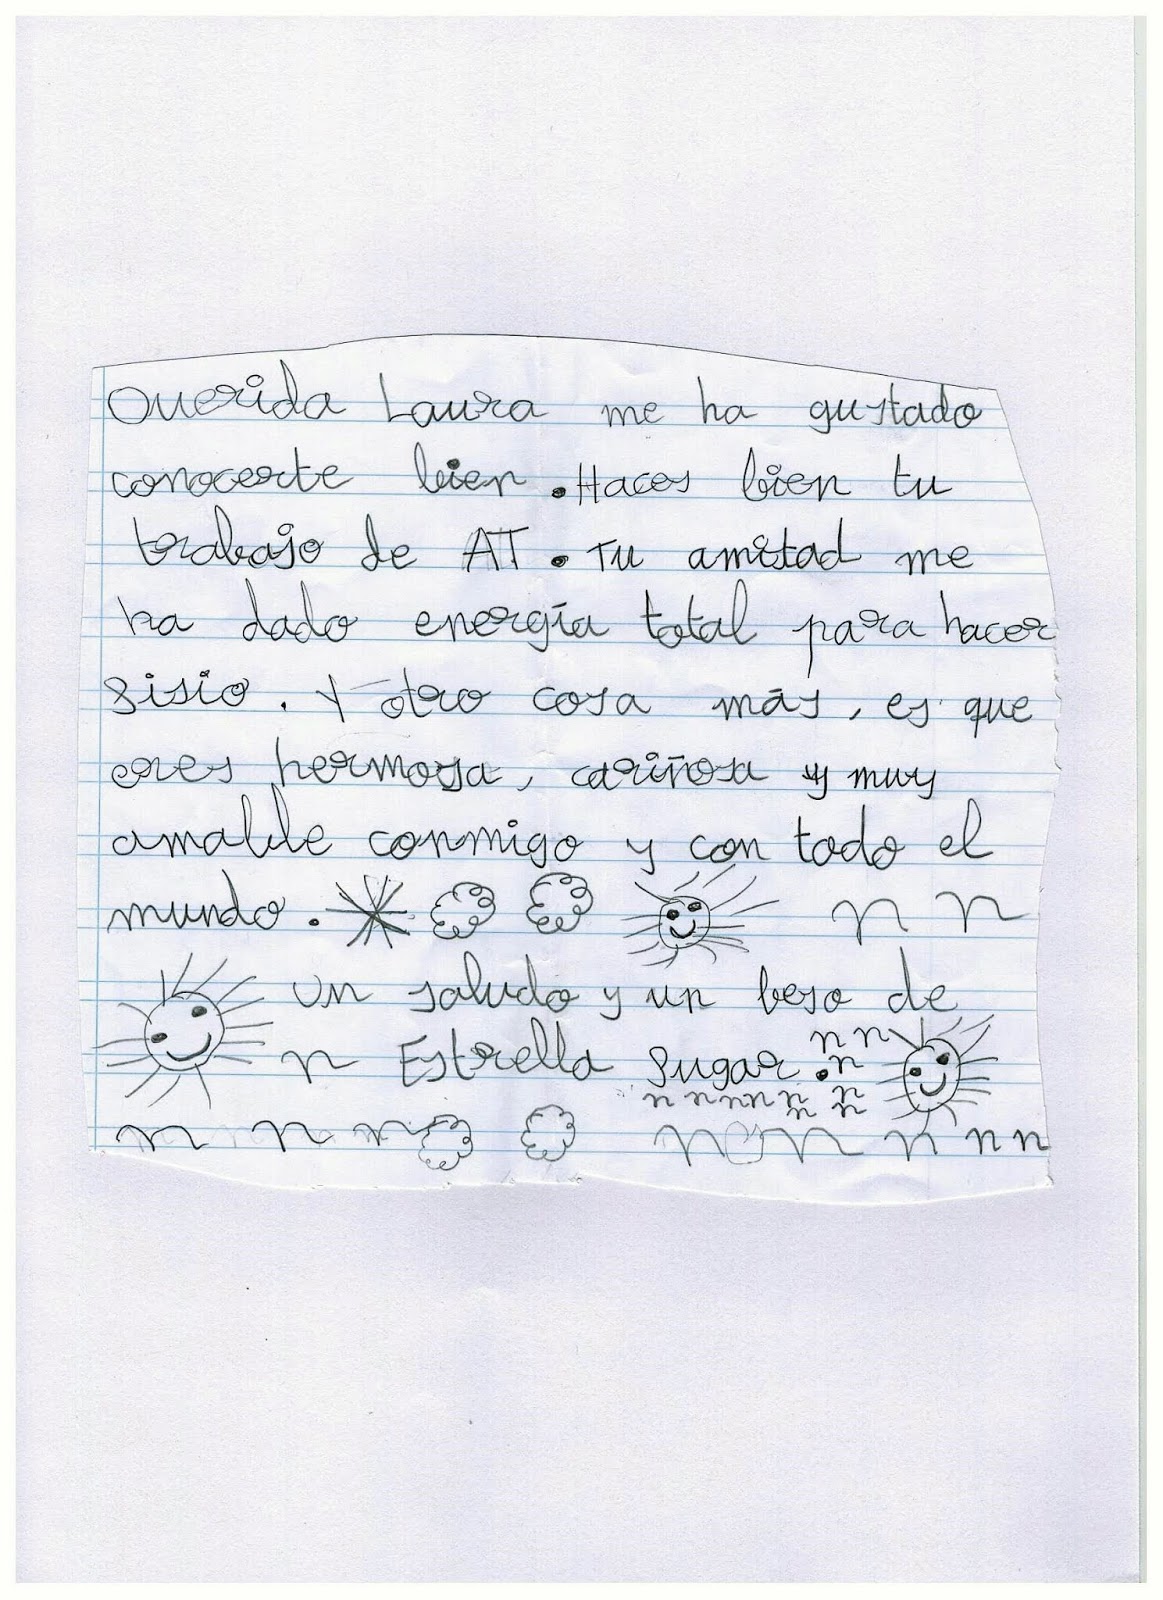 Querida Laura me ha gustado
conocerte bien. Haces bien tu
trabajo de AT. Tu amitad me
ha dado energía total para hacer
sisio. Y otro cosa más, es que
eres hermosa, cariñosa y muy
amable conmigo y con todo el
mundo.
n n
Un saludo y un beso de
n Estrella Sugar.